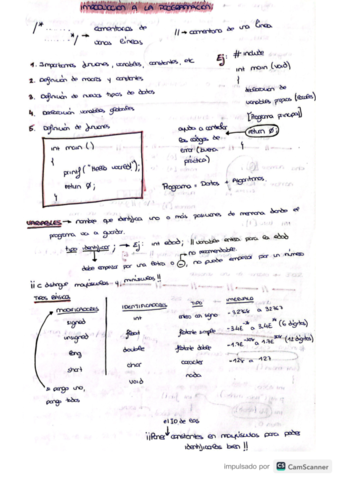 INTRODUCCIÓN A LA PROGRAMACIÓN
/* ... */ → comentarios de varias líneas
// → comentario de una línea
1. Importamos funciones, variables, constantes, etc
2. Definición de macros y constantes
3. Definición de nuevos tipos de datos
4. Declaración variables globales
5. Definición de funciones
Ej: # include
int main (void)
{
declaración de variables propias (locales)
[Programa principal]
return 0;
}
ayuda a controlar los códigos de error (buena práctica)
int main ()
{
printf ("Hello world");
return 0;
}
Programa = Datos + Algoritmos.
VARIABLES → nombre que identifica una o más posiciones de memoria donde el programa va a guardar.
tipo identificador ; → Ej: int edad; // variable entera para la edad
no recomendable
debe empezar por una letra o _, no puede empezar por un número
¡¡ C distingue mayúsculas y minúsculas !!
TIPOS BÁSICOS
MODIFICADORES IDENTIFICADORES TIPO
signed int entero con signo -32768 a 32767
unsigned float flotante simple (6 dígitos)
long double flotante doble (12 dígitos)
short char caracter -128 a 127
void nada
o pongo uno,
pongo todos
¡¡Poner constantes en mayúsculas para poder identificarlas bien !!
impulsado por CS CamScanner